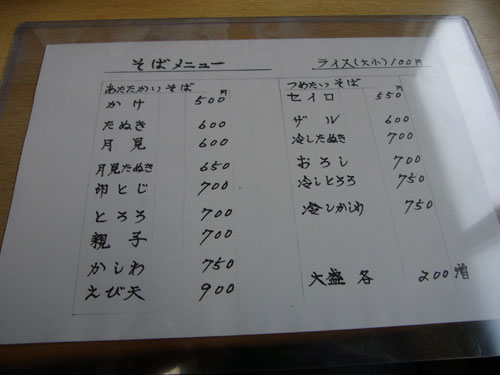 そばメニュー
ライス(大小)100円
あたたかいそば
かけ 500円
たぬき 600
月見 600
月見たぬき 650
卵とじ 700
とろろ 700
親子 700
かしわ 750
えび天 900
つめたいそば
セイロ 550円
ザル 600
冷したぬき 700
おろし 700
冷しとろろ 750
冷しかしわ 750
大盛各 200増